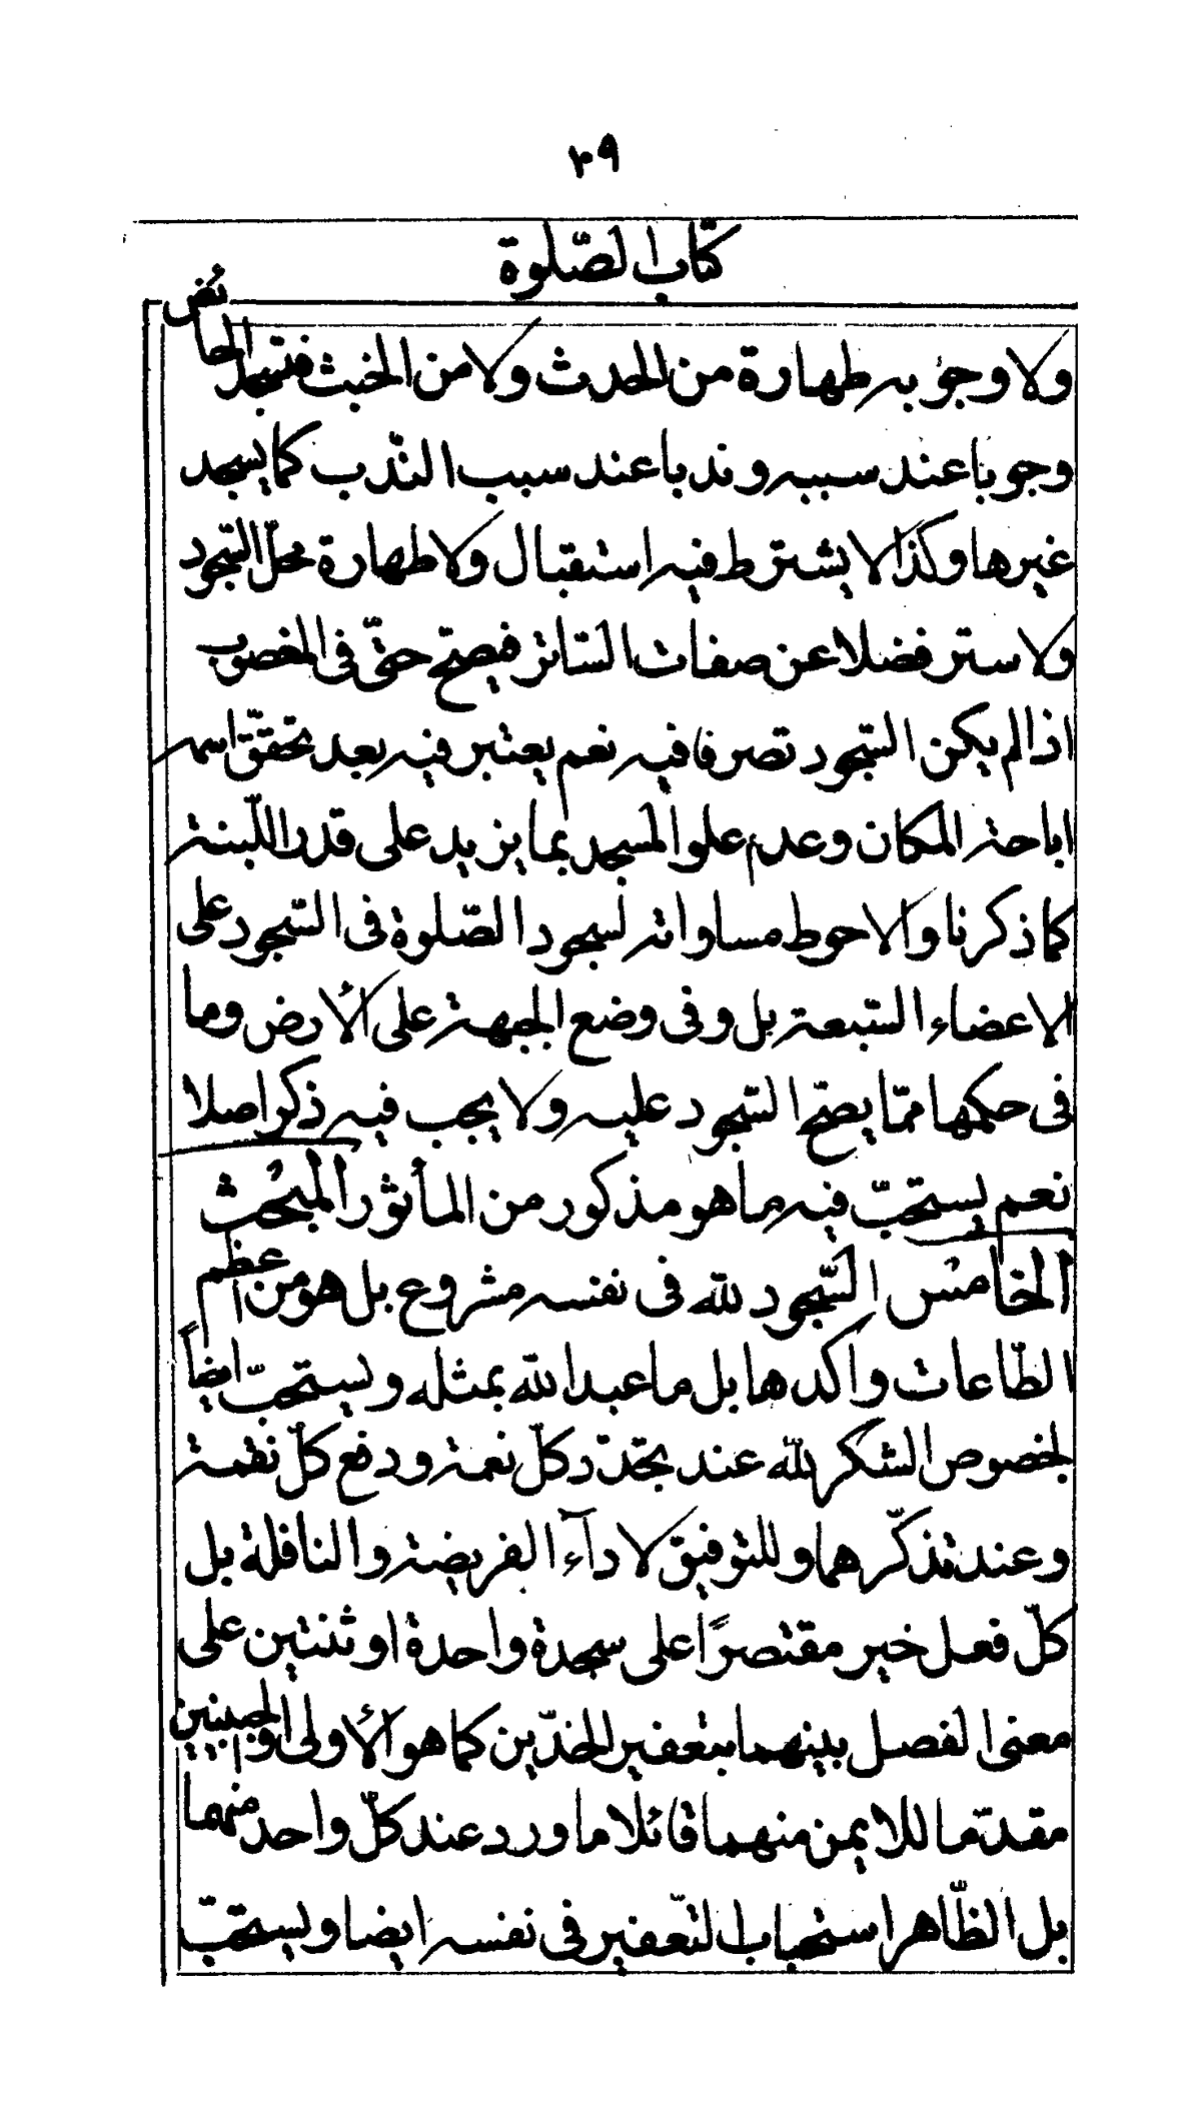 ٣٩
كتاب الصّلوة
ولا وجوبه طهارة من الحدث ولا من الخبث فتسجد الحائض
وجوبا عند سببه وندبا عند سبب النّدب كما يسجد
غيرها وكذا لا يشترط فيه استقبال ولا طهارة محلّ السّجود
ولا ستر فضلا عن صفات السّاتر فيصحّ حتّى فى المغصوب
اذا لم يكن السّجود تصرفا فيه نعم يعتبر فيه بعد تحقّق اسمه
اباحة المكان وعدم علو المسجد بما يزيد على قدر اللّبنة
كما ذكرنا والاحوط مساواته لسجود الصّلوة فى السّجود على
الاعضاء السّبعة بل وفى وضع الجبهة على الأرض وما
فى حكمها ممّا يصحّ السّجود عليه ولا يجب فيه ذكر اصلا
نعم يستحبّ فيه ما هو مذكور من المأثور المبحث
الخامس السّجود للّه فى نفسه مشروع بل هو من اعظم
الطّاعات وآكدها بل ما عبد اللّه بمثله ويستحبّ ايضاً
لخصوص الشكر للّه عند تجدّد كلّ نعمة ودفع كلّ نقمة
وعند تذكّرهما وللتوفيق لادآء الفريضة والنافلة بل
كلّ فعل خير مقتصرًا على سجدة واحدة او ثنتين على
معنى الفصل بينهما بتعفير الخدّين كما هو الأولى او الجبينين
مقدّما للايمن منهما قائلا ما ورد عند كلّ واحد منهما
بل الظّاهر استحباب التّعفير فى نفسه ايضا ويستحبّ